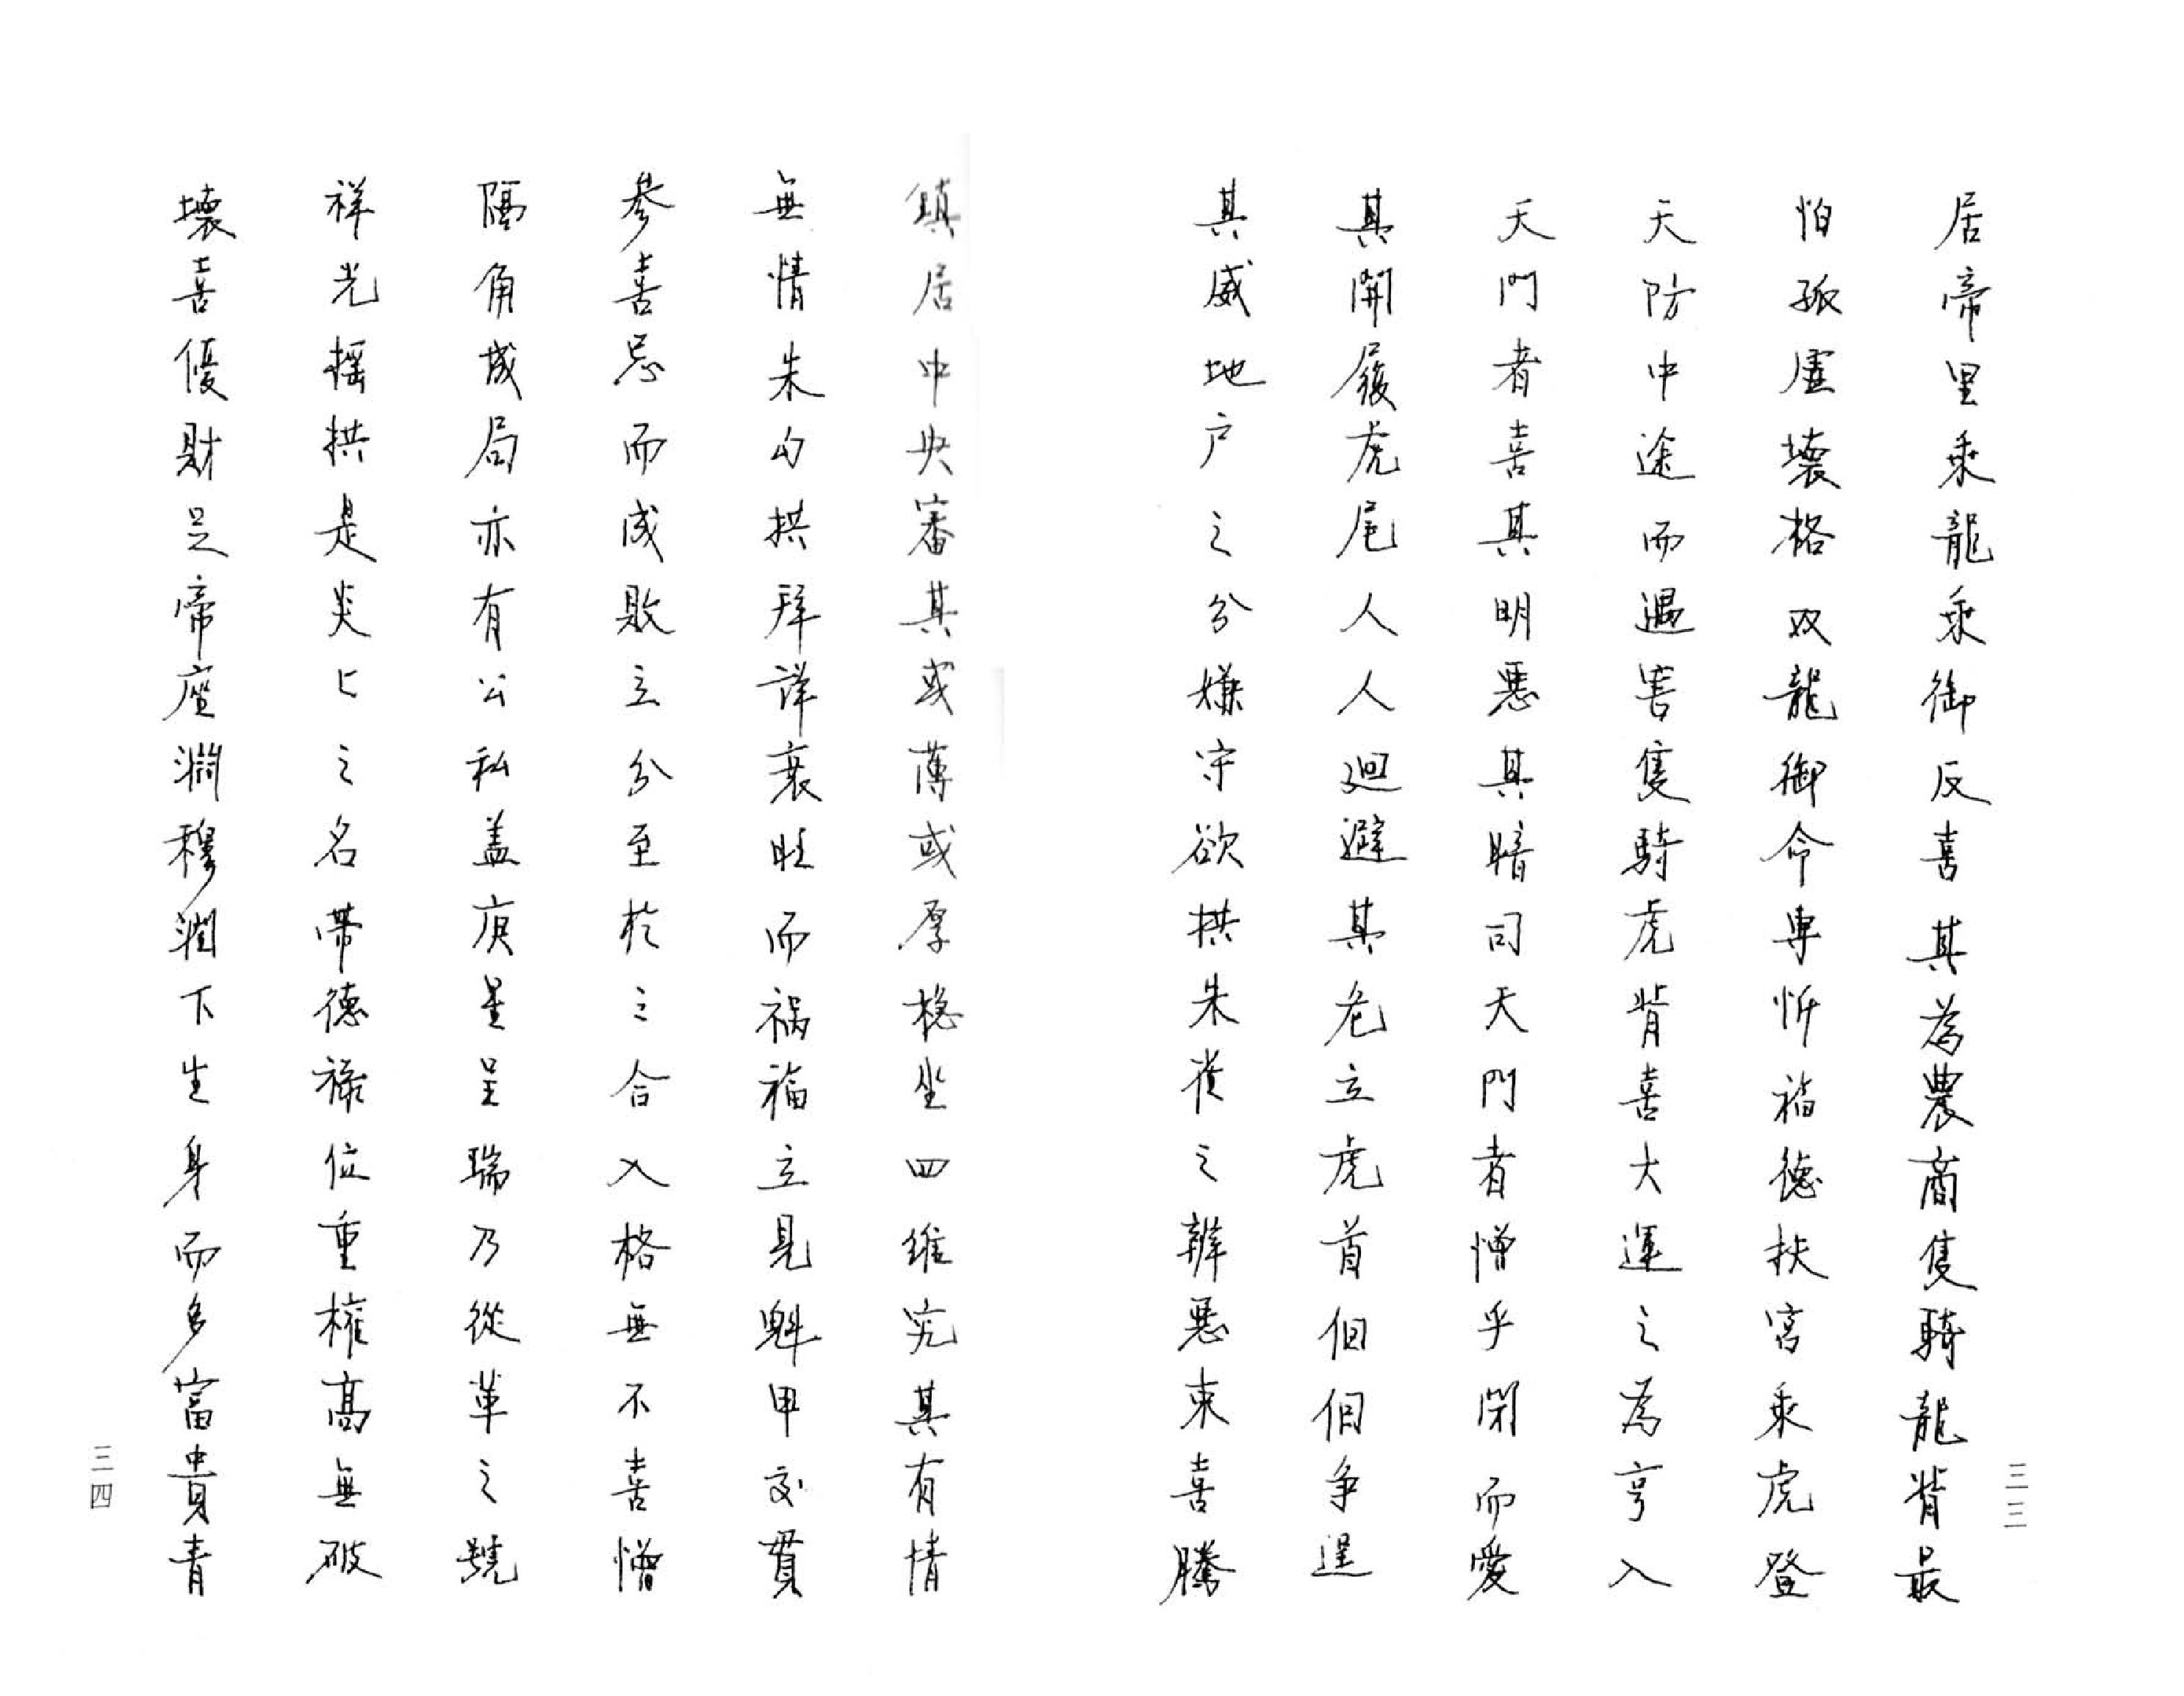 居帝里乘龍乘御反喜其為農商隻騎龍背最
怕孤虛壞格双龍御命專忻福德扶宮乘虎登
天防中途而遇害隻騎虎背喜大運之為亨入
天門者喜其明惡其暗司天門者憎乎閉而愛
其開履虎尾人人迴避其危立虎首個個爭逞
其威地户之分嫌守欲拱朱雀之辦惡東喜騰
三三
鎮居中央審其或薄或厚穩坐四維究其有情
無情朱勾拱拜詳衰旺而禍福立見魁甲交貫
參喜忌而成敗立分至於之合入格無不喜憎
隔角成局亦有公私盖庚星呈瑞乃從革之號
祥光摇拱是炎匕之名帶德祿位重權高無破
壞喜優財足帝座澗穆潤下生身而多富貴青
三四